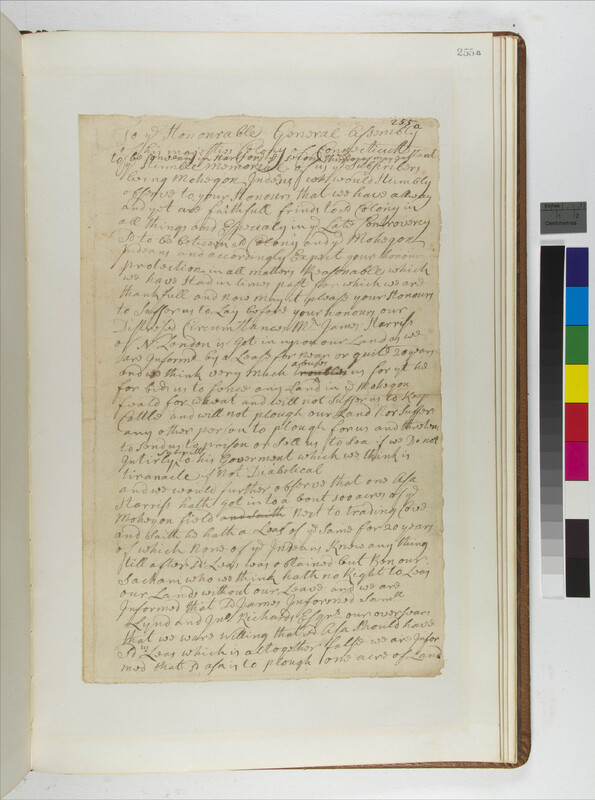 255a
255a
To ye Honourable General Assembly
of his majesties Colony of Connecticutt
to be conveaned in Hartford ye second Thursday may instant
ye Humble Memorial of us ye Subscribers
being Mohegon Indens who would Humbly
observe to your Honours that we have allway
and yet are faithfull frinds to sd Colony in
all things and Especialy in ye Late Controversy
sd to be between sd Colony and ye Mohegon
Indeans and accordingly Expect your honours
protection in all matters Reasonable which
we have Had in times past for which we are
thankfull and now may it please your Honours
to Suffer us to Lay before your honours our
Distressed Circumstances Mr James Harriss
of N. London is Got in upon our Land as we
are Informd by a Lease for near or quite 20 years
and we think very much abuses us for yt he
for bids us to fence any Land in ye Mohegon
feald for wheat and will not Suffer us to Keep
Cattle and will not plough our Land Nor Suffer
any other person to plough for us and threatens
to send us to prison or Sell us to Sea if we Do not
Intirly submitt to his Goverment which we think is
tiranacle if Not Diabolical
and we would further observe that one Asa
Harriss hath got into a bout 100 acres of ye
Mohegon field and saith Next to Trading Cove
and saith he hath a Leas of ye Same for 20 years
of which None of ye Indeans Knew any thing
till after sd Leas was obtained but Ben our
Sacham who we think hath no Right to Leas
our Lands without our Leave and we are
Informed that sd James Informed Samll
Lynd and Jno Richards Esqrs our oversears
that we ware willing that sd Asa Should have
sd Leas which is altogether false we are Infor
med that sd Asa is to plough one acre of Land